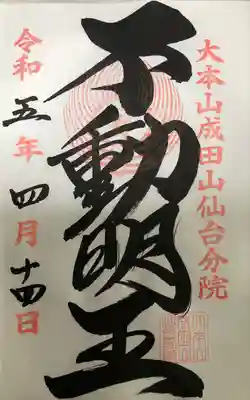 大本山成田山仙台分院
不動明王
令和五年四月十四日